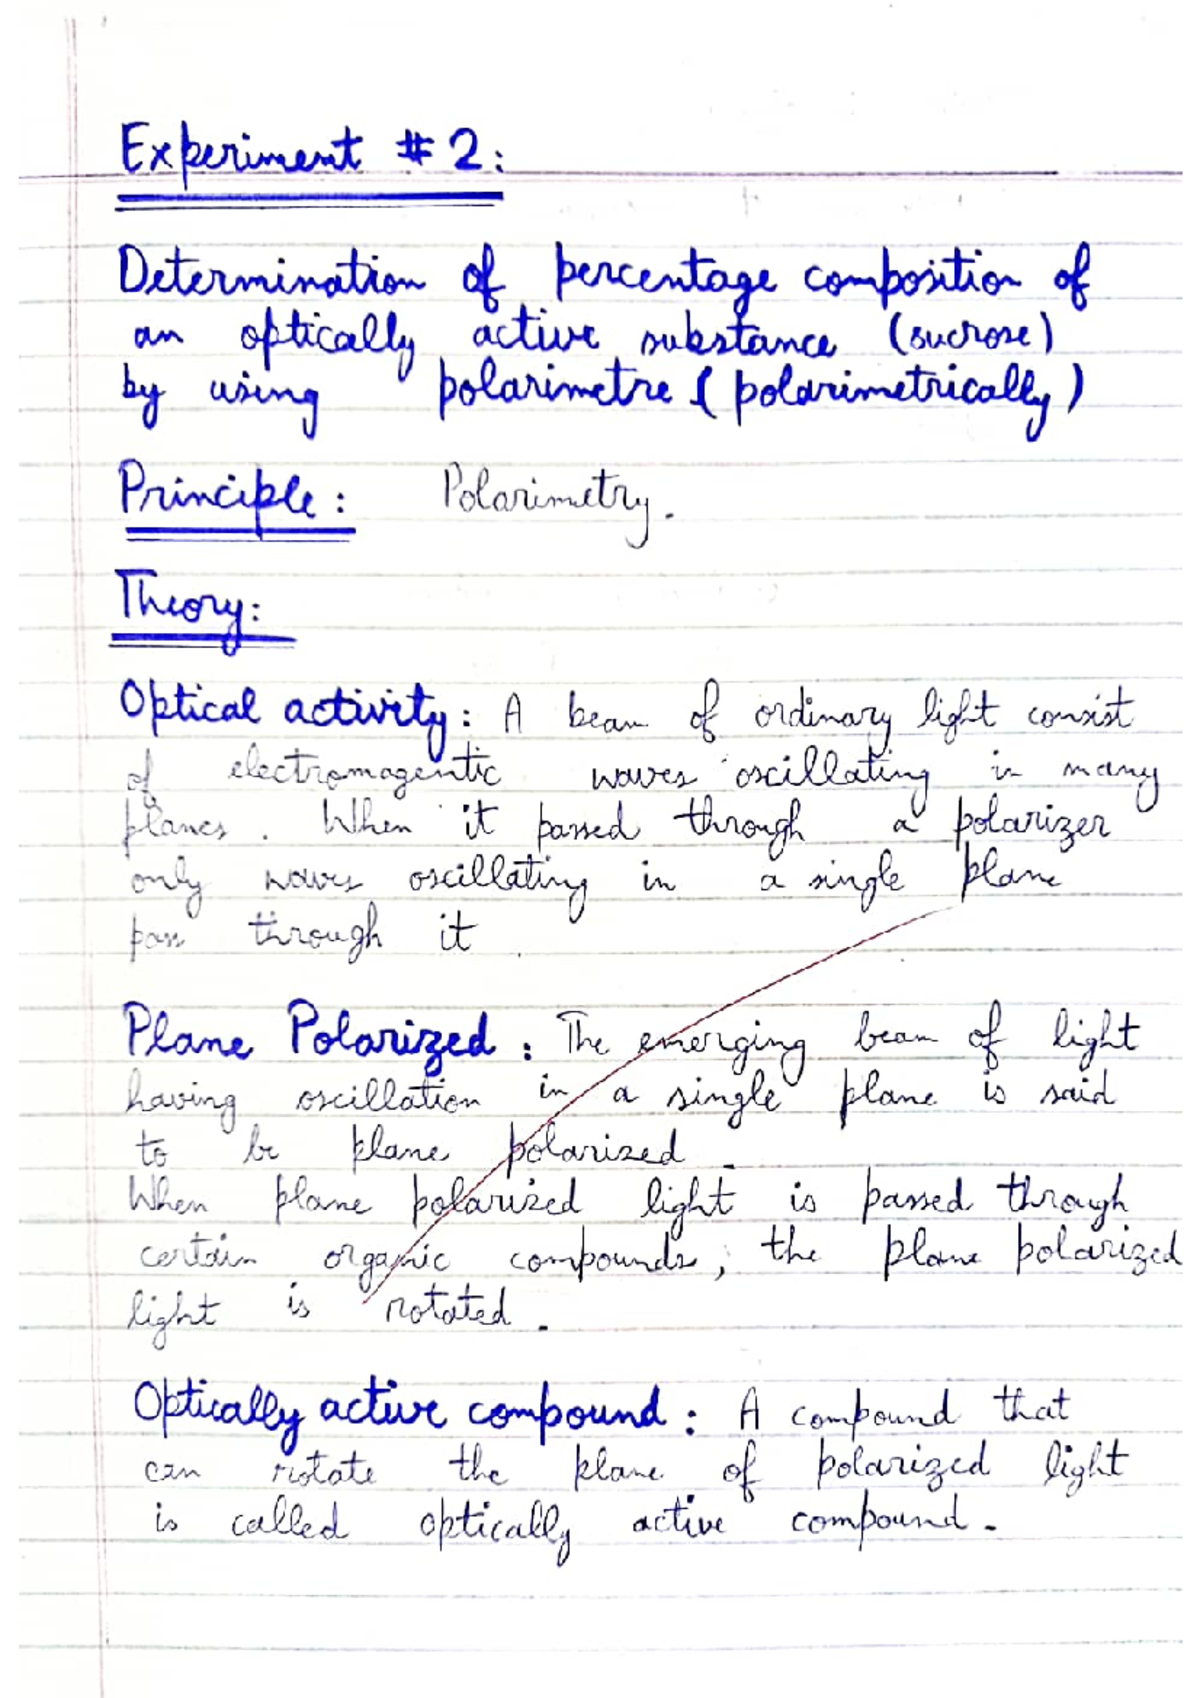 Experiment # 2:
Determination of percentage composition of
an optically active substance (sucrose)
by using polarimetre (polarimetrically)
Principle: Polarimetry.
Theory:
Optical activity: A beam of ordinary light consist
of electromagentic waves oscillating in many
planes. When it passed through a polarizer
only waves oscillating in a single plane
pass through it.
Plane Polarized: The emerging beam of light
having oscillation in a single plane is said
to be plane polarized.
When plane polarized light is passed through
certain organic compounds, the plane polarized
light is rotated.
Optically active compound: A compound that
can rotate the plane of polarized light
is called optically active compound.